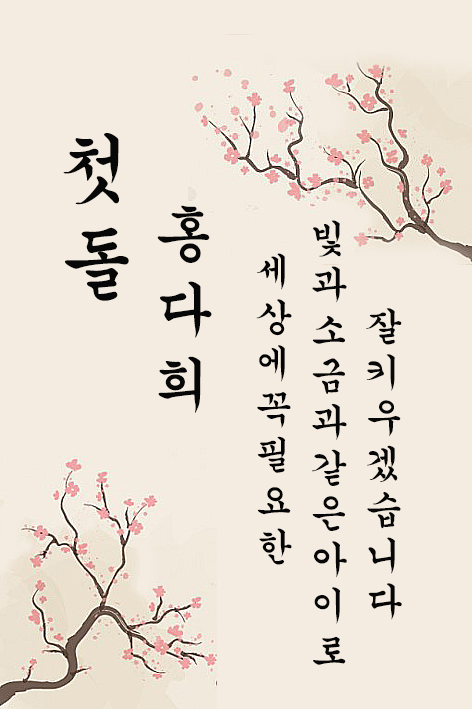 첫돌
홍다희
세상에꼭필요한
빛과소금과같은아이로
잘키우겠습니다